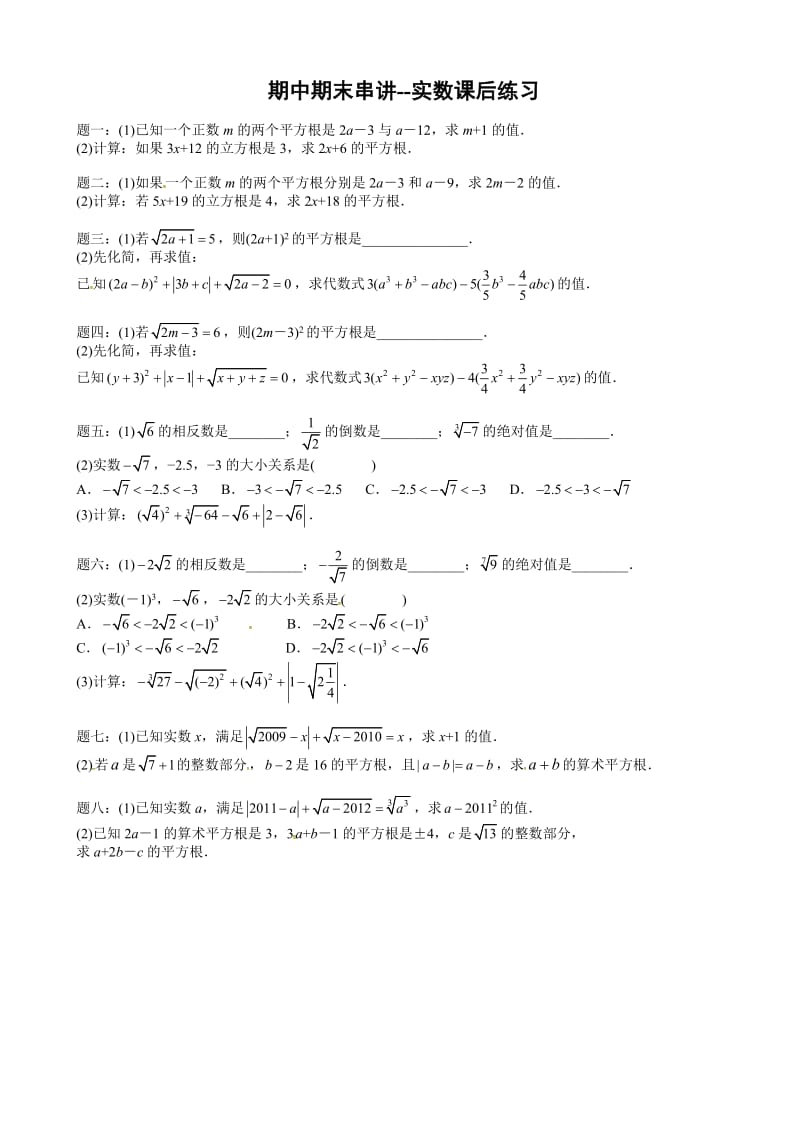 期中期末串讲--实数课后练习
题一：(1)已知一个正数 m 的两个平方根是 2a－3 与 a－12，求 m+1 的值．
(2)计算：如果 3x+12 的立方根是 3，求 2x+6 的平方根．
题二：(1)如果一个正数 m 的两个平方根分别是 2a－3 和 a－9，求 2m－2 的值．
(2)计算：若 5x+19 的立方根是 4，求 2x+18 的平方根．
题三：(1)若 √(2a+1) = 5，则(2a+1)² 的平方根是_______________．
(2)先化简，再求值：
已知 (2a−b)² + |3b+c| + √(2a−2) = 0，求代数式 3(a³+b³−abc)−5(3/5 b³−4/5 abc) 的值．
题四：(1)若 √(2m−3) = 6，则(2m－3)² 的平方根是_______________．
(2)先化简，再求值：
已知 (y+3)² + |x−1| + √(x+y+z) = 0，求代数式 3(x²+y²−xyz)−4(3/4 x²+3/4 y²−xyz) 的值．
题五：(1) √6 的相反数是________；1/√2 的倒数是________；∛−7 的绝对值是________．
(2)实数 −√7，−2.5，−3 的大小关系是(　　)
A．−√7 < −2.5 < −3 B．−3 < −√7 < −2.5 C．−2.5 < −√7 < −3 D．−2.5 < −3 < −√7
(3)计算：(√4)² + ∛−64 − √6 + |2−√6|．
题六：(1) −2√2 的相反数是________；−2/√7 的倒数是________；⁷√9 的绝对值是________．
(2)实数(－1)³，−√6，−2√2 的大小关系是(　　)
A．−√6 < −2√2 < (−1)³ B．−2√2 < −√6 < (−1)³
C．(−1)³ < −√6 < −2√2 D．−2√2 < (−1)³ < −√6
(3)计算：−∛27 − √(−2)² + (√4)² + |1−√(2 1/4)|．
题七：(1)已知实数 x，满足 |√2009−x| + √(x−2010) = x，求 x+1 的值．
(2)若 a 是 √7+1 的整数部分，b−2 是 16 的平方根，且 |a−b|=a−b，求 a+b 的算术平方根．
题八：(1)已知实数 a，满足 |2011−a| + √(a−2012) = ∛a³，求 a−2011² 的值．
(2)已知 2a－1 的算术平方根是 3，3a+b－1 的平方根是±4，c 是 √13 的整数部分，
求 a+2b－c 的平方根．